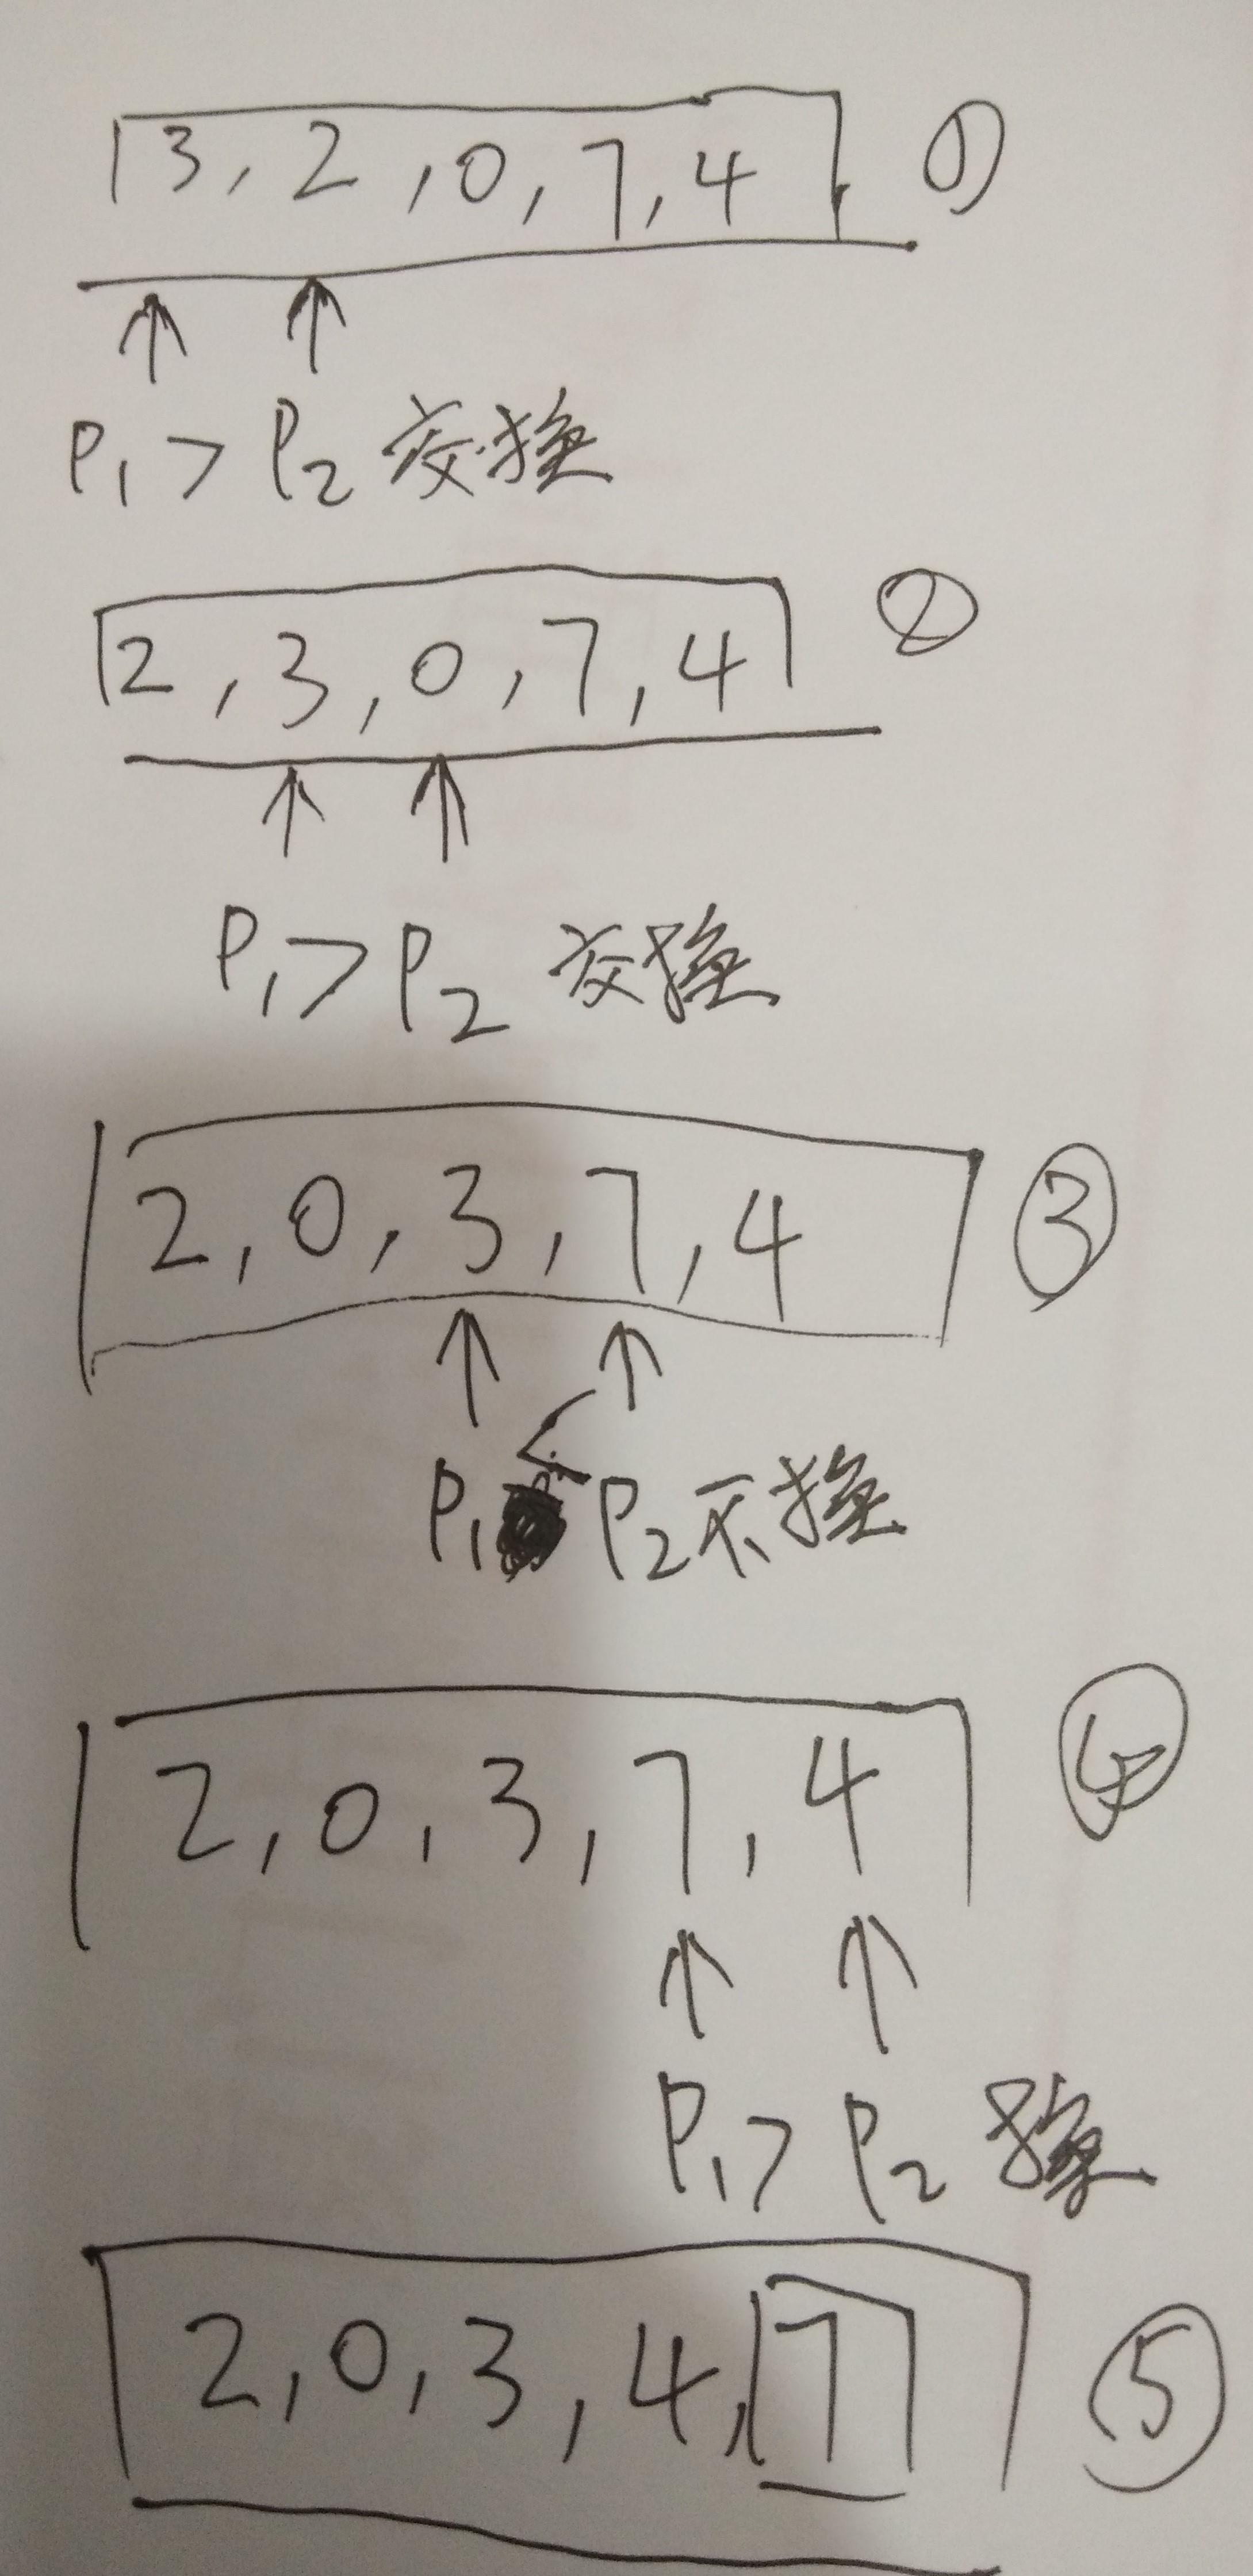 3, 2, 0, 7, 4 ①
P1 > P2 交换
2, 3, 0, 7, 4 ②
P1 > P2 交换
2, 0, 3, 7, 4 ③
P1 < P2 不换
2, 0, 3, 7, 4 ④
P1 > P2 换
2, 0, 3, 4, 7 ⑤